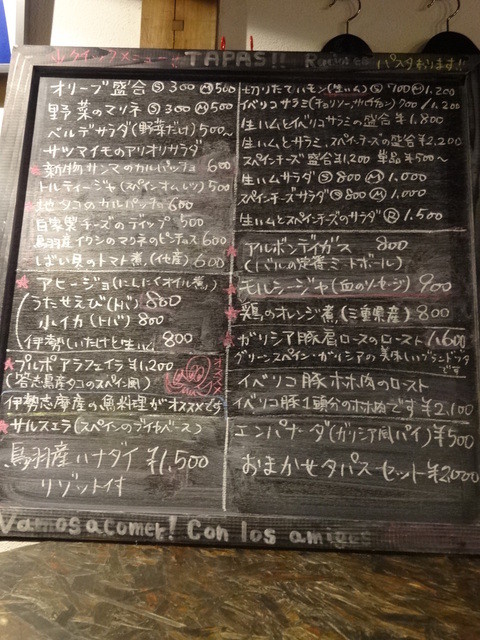 クイックメニュー TAPAS!! パスタあります!!
オリーブ盛合 Ⓢ300 Ⓜ500
野菜のマリネ Ⓢ300 Ⓜ500
ベルデサラダ(野菜だけ) 500〜
サツマイモのアリオリサラダ
新物サンマのカルパッチョ 600
トルティージャ(スペインオムレツ) 500
地タコのカルパッチョ 600
自家製チーズのディップ 500
鳥羽産イワシのマリネのピンチョス 600
しばい貝のトマト煮 600
アヒージョ(にんにくオイル煮)
うたせえび 800
水イカ 800
伊勢しいたけと生ハム 800
プルポアラフェイラ ¥1,200
(答志島産タコのスペイン風)
オススメ
伊勢志摩産の魚料理がオススメです
サルスエラ(スペインのブイヤベース)
鳥羽産ハナダイ ¥1,500
リゾット付
切りたてハモン(生ハム) Ⓢ700 Ⓜ1,200
イベリコサラミ(チョリソー、サルチチョン) 700/1,200
生ハムとイベリコサラミの盛合 ¥1,800
生ハムとサラミ、スペインチーズの盛合 ¥2,200
スペインチーズ盛合 ¥1,200 単品 ¥500〜
生ハムサラダ Ⓢ800 Ⓜ1,000
スペインチーズサラダ Ⓢ800 Ⓜ1,000
生ハムとスペインチーズのサラダ Ⓡ1,500
アルボンディガス 800
(バルの定番ミートボール)
モルシージャ(血のソーセージ) 900
鶏のオレンジ煮(三重県産) 800
ガリシア豚肩ロースのロースト 1,600
グリーンスペイン・ガリシアの美味しいブランドブタです
イベリコ豚ホホ肉のロースト
イベリコ豚1頭分のホホ肉です ¥2,100
エンパナーダ(ガリシア風パイ) ¥500
おまかせタパスセット ¥2,000
Vamos a comer! Con los amigos